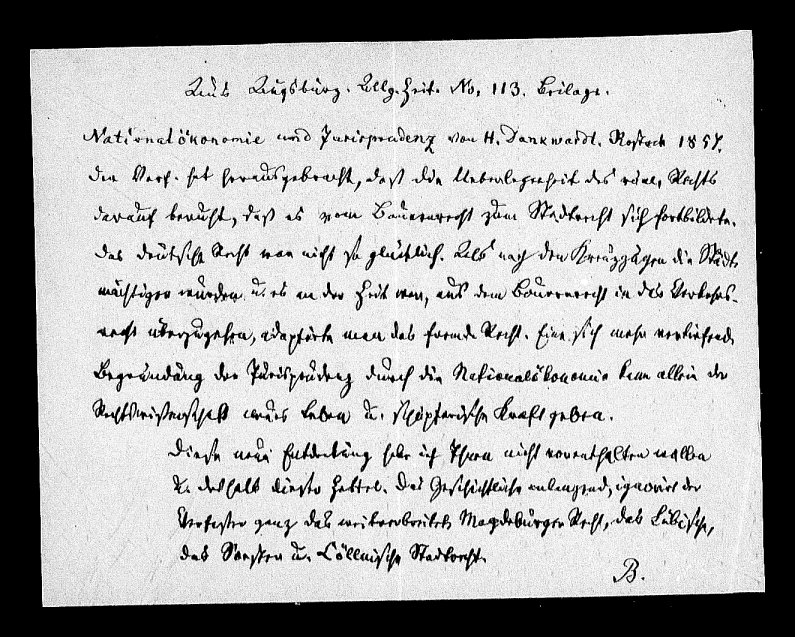 Aus Augsburg. Allg. Zeit. No. 113. Beilage.
Nationalökonomie und Jurisprudenz von H. Dankwardt. Rostock 1857.
Der Verf. hat herausgebracht, daß die Ueberlegenheit des röm. Rechts
darauf beruht, daß es vom Bauernrecht zum Stadtrecht sich fortbildete.
Das deutsche Recht war nicht so glücklich. Als nach den Kreuzzügen die Städte
mächtiger wurden u. es an der Zeit war, aus dem Bauernrecht in das Verkehrs-
recht überzugehen, adoptirte man das fremde Recht. Eine sich mehr vertiefende
Begründung der Jurisprudenz durch die Nationalökonomie kann allein der
Rechtswissenschaft neues Leben u. schöpferische Kraft geben.
Diese neue Entdeckung habe ich Ihnen nicht vorenthalten wollen
u. deshalb dieser Zettel. Das Geschichtliche anlangend, ignorirt der
Verfasser ganz das weitverbreitete Magdeburger Recht, das Lübische,
das Soester u. Cöllnische Stadtrecht.
B.